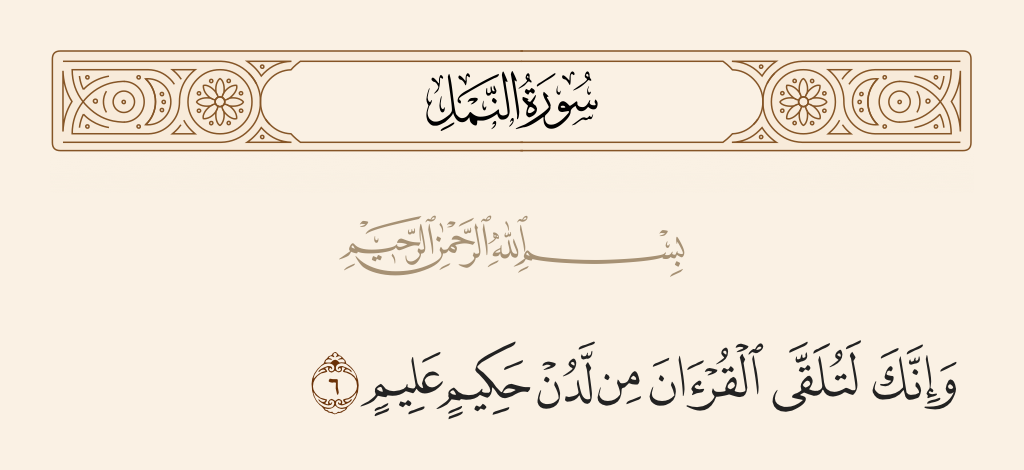 سُورَةُ النَّمۡلِ
بِسۡمِ ٱللَّهِ ٱلرَّحۡمَٰنِ ٱلرَّحِيمِ
وَإِنَّكَ لَتُلَقَّى ٱلۡقُرۡءَانَ مِن لَّدُنۡ حَكِيمٍ عَلِيمٍ ٦